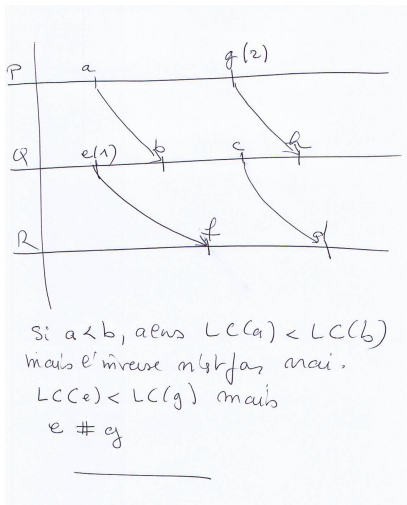 g(2)
P a
Q e(1) b c h
R f d
Si a<b, alors LC(a) < LC(b)
mais l'inverse n'est pas vrai.
LC(e) < LC(g) mais
e # g